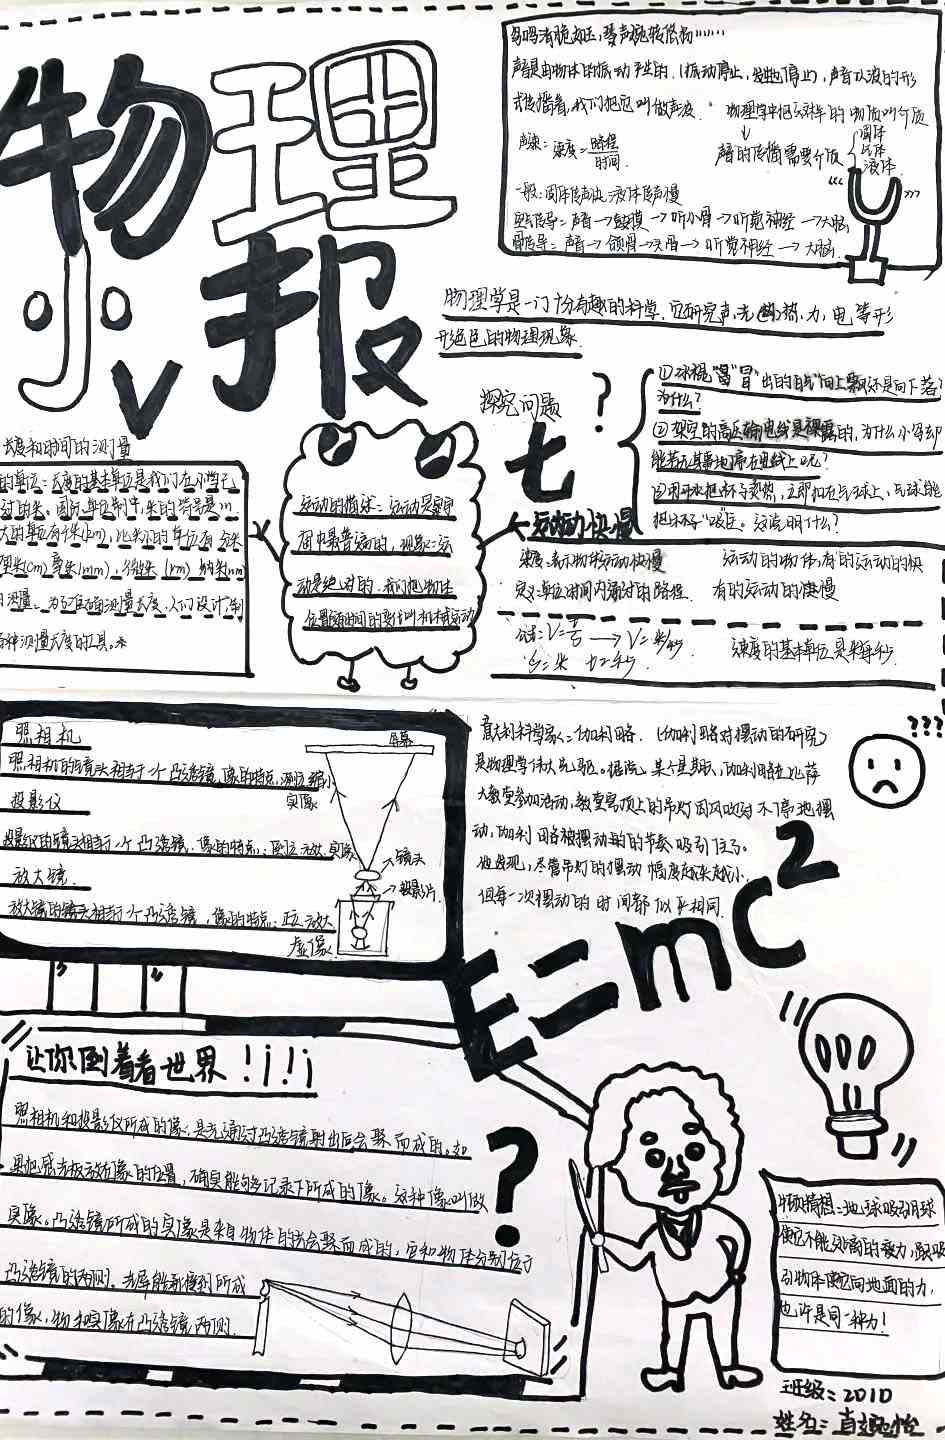 物理
小报
鸟鸣清脆如玉,琴声婉转悠扬……
声音是由物体的振动产生的.(振动停止,发声停止),声音以波的形
式传播着,我们把它叫做声波.
物理学中把这样的物质叫介质
声速=速度=路程/时间
声音的传播需要介质
固体
气体
液体
一般:固体传声快,液体传声慢
空气传导=声音→鼓膜→听小骨→听觉神经→大脑
骨传导=声音→颌骨→头骨→听觉神经→大脑
物理学是一门十分有趣的科学.它研究声、光、热、力、电等形
形色色的物理现象
探究问题
?
七
①冰棍“冒”出的白气“向上飘还是向下落?
为什么?
②架空的高压输电线是裸露的,为什么小鸟却
能若无其事地停在电线上呢?
把杯子“吸”住。这说明什么?
长度和时间的测量
的单位:长度的基本单位是我们在小学已
过的米。国际单位制中,米的符号是m.
大的单位有千米(km),比米小的单位有分米
厘米(cm)毫米(mm),
测量。为了准确测量长度,人们设计制
各种测量长度的工具。
运动的描述:运动是宇宙
间中最普遍的,现象:运
动是绝对的.我们把物体
位置随时间的变化叫机械运动
运动快慢
速度:表示物体运动快慢
定义:单位时间内通过的路程.
运动的物体,有的运动的快
有的运动的慢
S=米 t=秒
速度的基本单位是米每秒.
照相机
照相机的镜头相当于一个凸透镜,像的特点:倒立缩小
实像
投影仪
投影仪的镜头相当于一个凸透镜.像的特点:倒立放大实像
放大镜.
放大镜的镜头相当于一个凸透镜,像的特点:正立放大
虚像.
屏幕
镜头
投影片
意大利科学家:伽利略.(伽利略对摆动的研究)
是物理学伟大先驱。据说,某个星期天,伽利略在比萨
大教堂参加活动,教堂穹顶上的吊灯因风吹过不停地摆
动,伽利略被摆动的节奏吸引住了。
他发现,尽管吊灯的摆动幅度越来越小.
但每一次摆动的时间都似乎相同.
???
E=mc²
让你倒着看世界!i!i
照相机和投影仪所成的像,是光通过凸透镜射出后会聚而成的。如
果把感光板放在像的位置,确实能够记录下所成的像。这种像叫做
实像。凸透镜所成的实像是来自物体的光会聚而成的,它和物体分别位于
凸透镜的两侧。光屏能承接到所成
的像,物和实像在凸透镜两侧.
?
牛顿猜想:地球吸引月球
使它不能分离的引力,跟吸
引物体使它向地面的力,
也许是同一种力!
班级:2010
姓名: